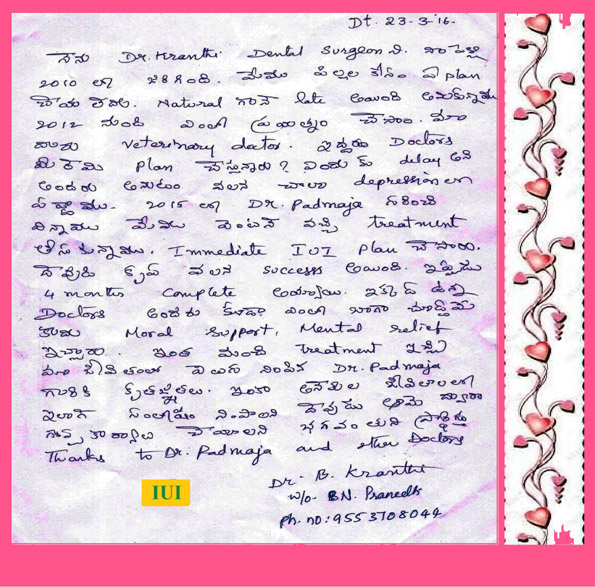 Dt. 23-3-16-
నాను Dr. Kranthi Dental Surgeon ని. నా పెళ్ళి
2010 లో జరిగింది. మేము పిల్లల కోసం ఏ plan
చేయలేదు. Natural గానే late అయింది అనుకున్నాము
2012 నుండి ఎంతో ప్రయత్నం చేసాం. మా
వారు veterinary doctor. ఇద్దరు Doctors
మీరేమి plan చేస్తున్నారు? ఎందుకు delay అని
అందరు అనుటం వలన చాలా depression లో
2015 లో DR. Padmaja గురించి
విన్నాము మేము వెంటనే వచ్చి treatment
తీసుకున్నాము. Immediate IUI plan చేసారు.
దేవుని కృప వలన success అయింది. ఇప్పుడు
4 months complete అయ్యాయి. ఇక్కడ ఉన్న
Doctors అందరు కూడా ఎంతో బాగా చూడ్డమే
కాదు Moral support, Mental relief
ఇచ్చారు. ఇంత మంచి treatment ఇచ్చి
మా జీవితంలో వెలుగు నింపిన Dr. Padmaja
గారికి కృతజ్ఞతలు. ఇంకా అనేకుల జీవితాలలో
ఇలాగే సంతోషం నింపాలని దేవుడు ఆమె ద్వారా
గొప్ప కార్యాలు చేయాలని భగవంతుని ప్రార్థిస్తూ
Thanks to Dr. Padmaja and other Doctors
Dr. B. Kranthi
W/o. B.N. Praneeth
Ph. no: 9553708044
IUI